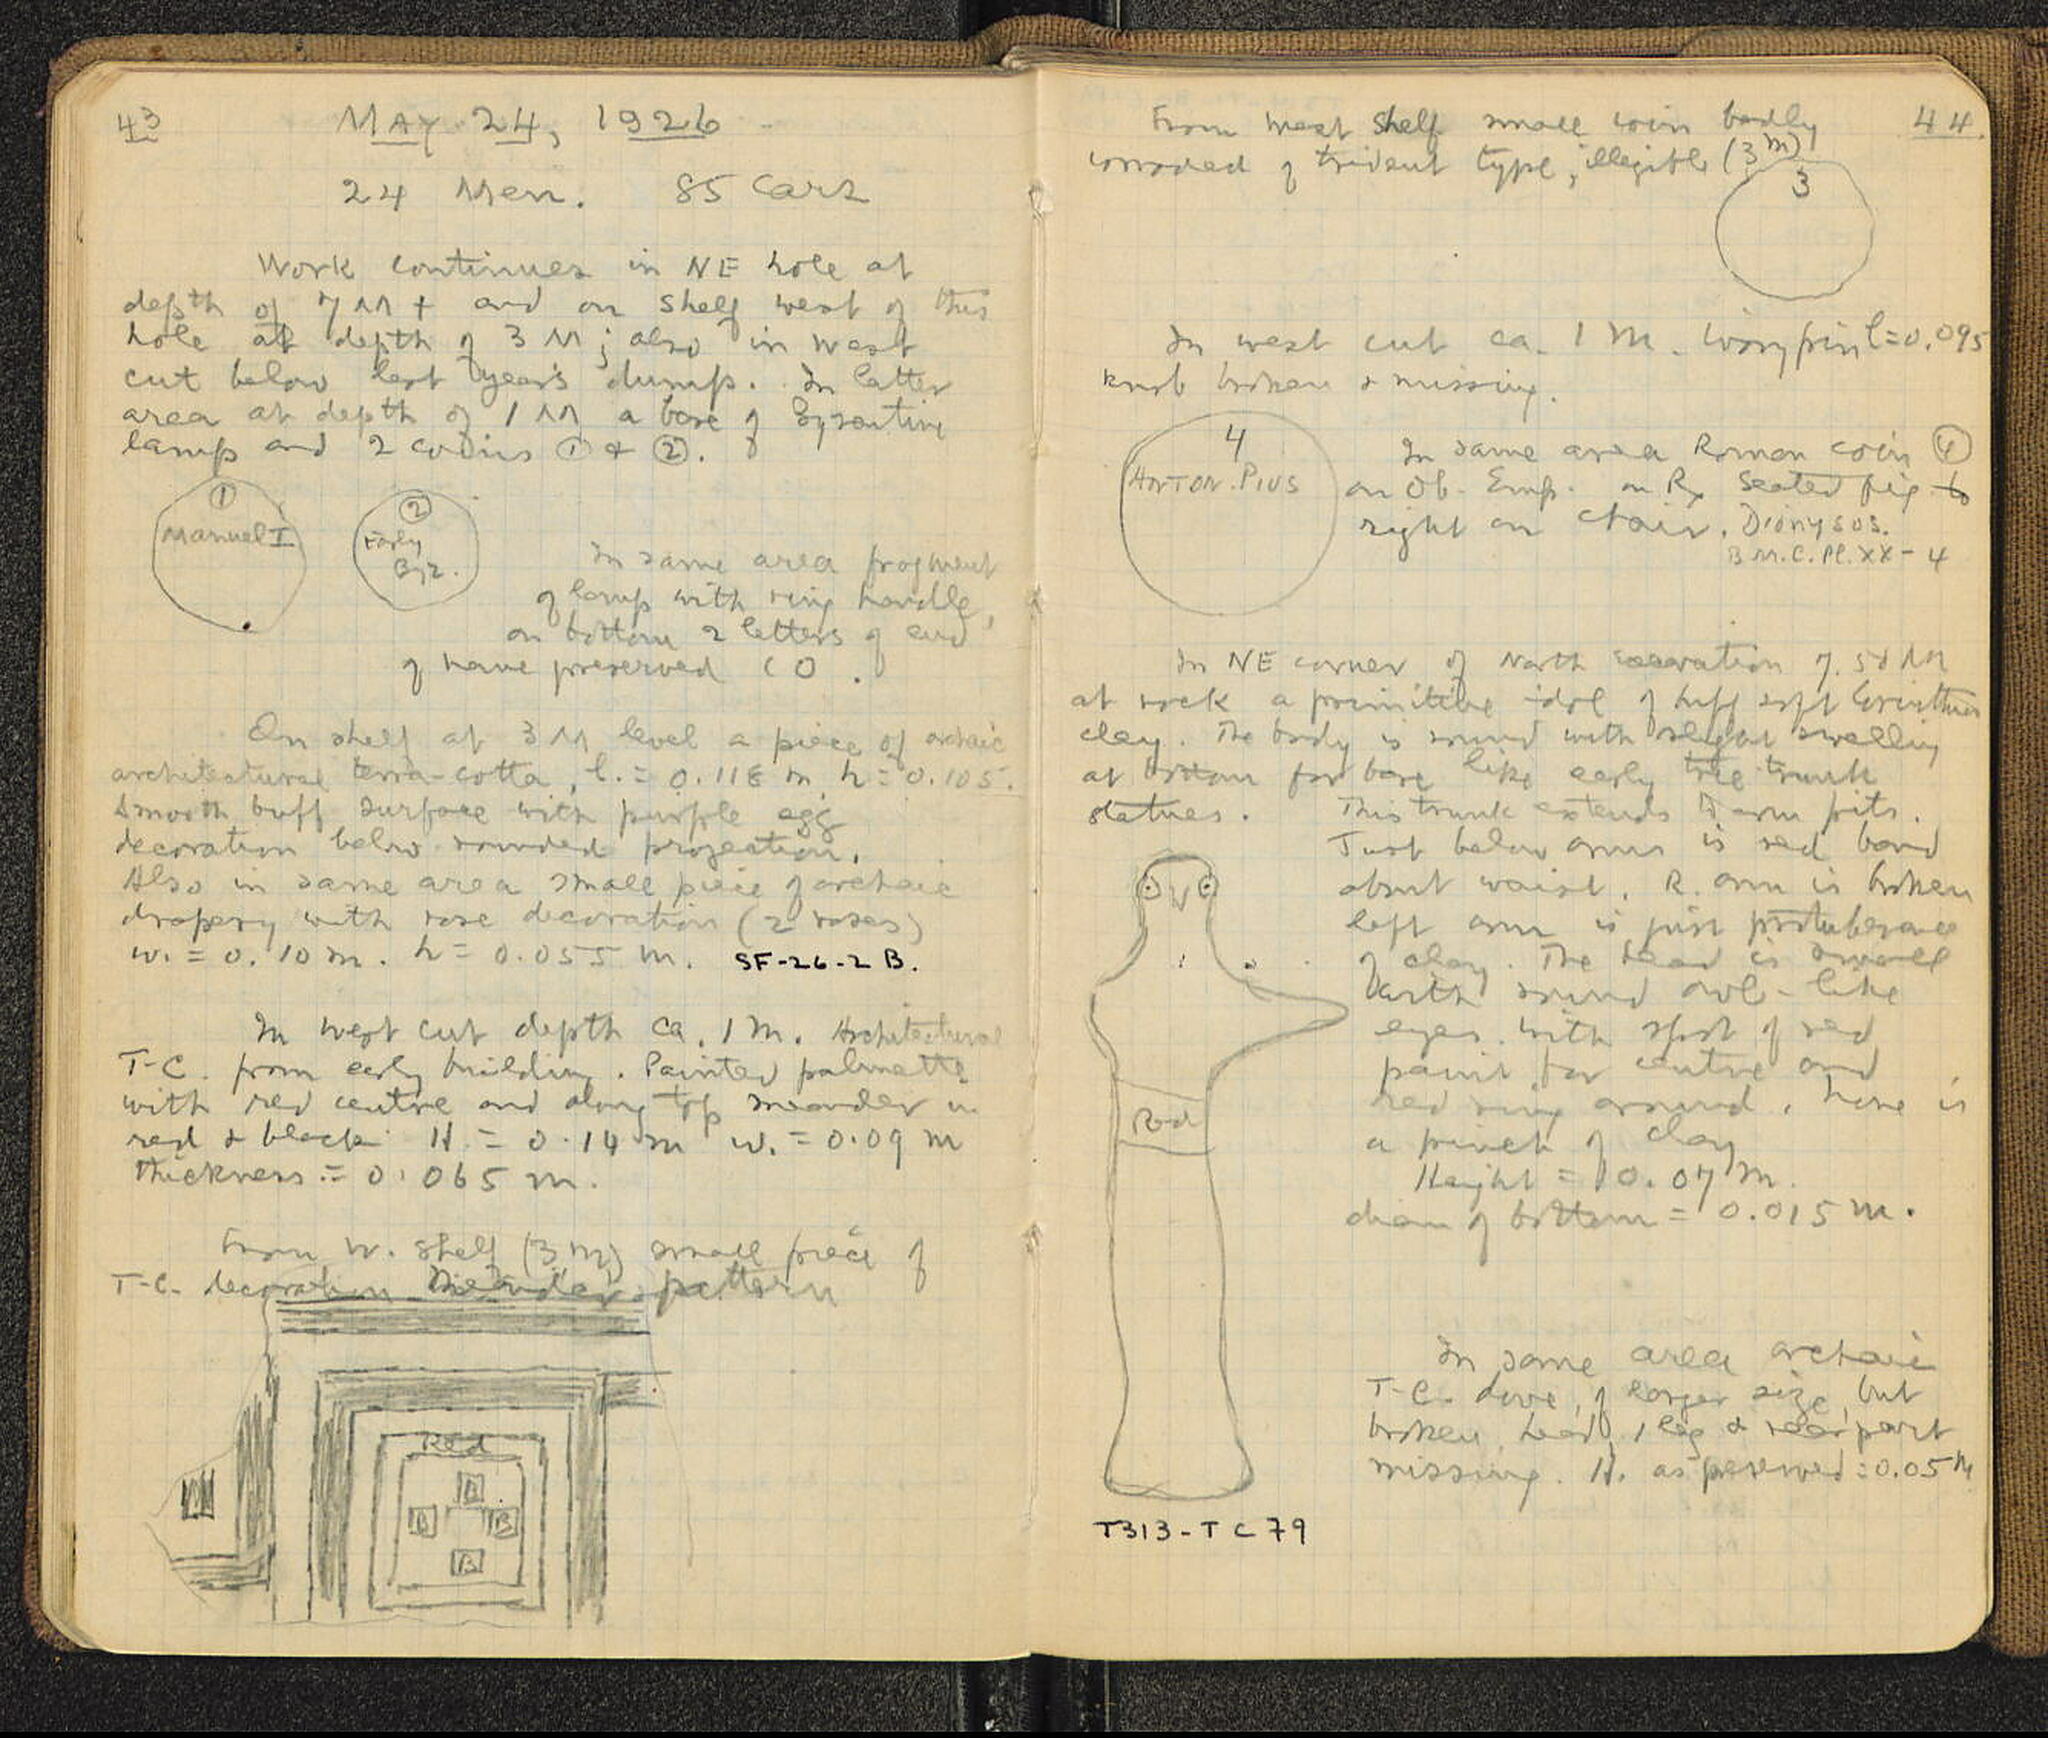 43
MAY 24, 1926
24 Men. 85 Cars
Work continues in NE hole at
depth of 7 M + and on shelf west of this
hole at depth of 3 M; also in west
cut below last year's dump. In latter
area at depth of 1 M a base of Byzantine
lamp and 2 coins ① & ②.
① ②
Manuel I Early
Byz.
In same area fragment
of lamp with ring handle,
on bottom 2 letters of end
of name preserved CO.
On shelf at 3 M level a piece of archaic
architectural terra-cotta, l. = 0.118 m. h = 0.105.
Smooth buff surface with purple egg
decoration below rounded projection.
Also in same area small piece of archaic
drapery with rose decoration (2 roses)
w. = 0.10 m. h = 0.055 m. SF-26-2 B.
In west cut depth ca. 1 m. Architectural
T-C. from early building. Painted palmette
with red centre and along top meander in
red & black H. = 0.14 m w. = 0.09 m
thickness = 0.065 m.
From W. shelf (3 m) small piece of
T-C. decoration meander pattern
Red
B
B B
B
44.
From west shelf small coin badly
corroded of trident type, illegible (3 m)
3
In west cut ca. 1 M. Ivory pin l = 0.095
knob broken & missing.
4
ANTON. PIUS
In same area Roman coin ④
on Ob. Emp. on Rx Seated fig. to
right on chair. Dionysos.
B.M.C. Pl. XX-4
In NE corner of North excavation 7.50 M
at rock a primitive idol of buff soft Corinthian
clay. The body is round with slight swelling
at bottom for base like early tree trunk
statues. This trunk extends to arm pits.
Just below arms is red band
about waist. R. arm is broken
left arm is just protuberance
of clay. The head is small
with round owl-like
eyes with spot of red
paint for centre and
red ring around. nose is
a pinch of clay
Height = 0.07 m.
diam of bottom = 0.015 m.
Red
In same area archaic
T-C. dove, of larger size, but
broken, head, 1 leg & rear part
missing. H. as preserved = 0.05 M
T313-TC79